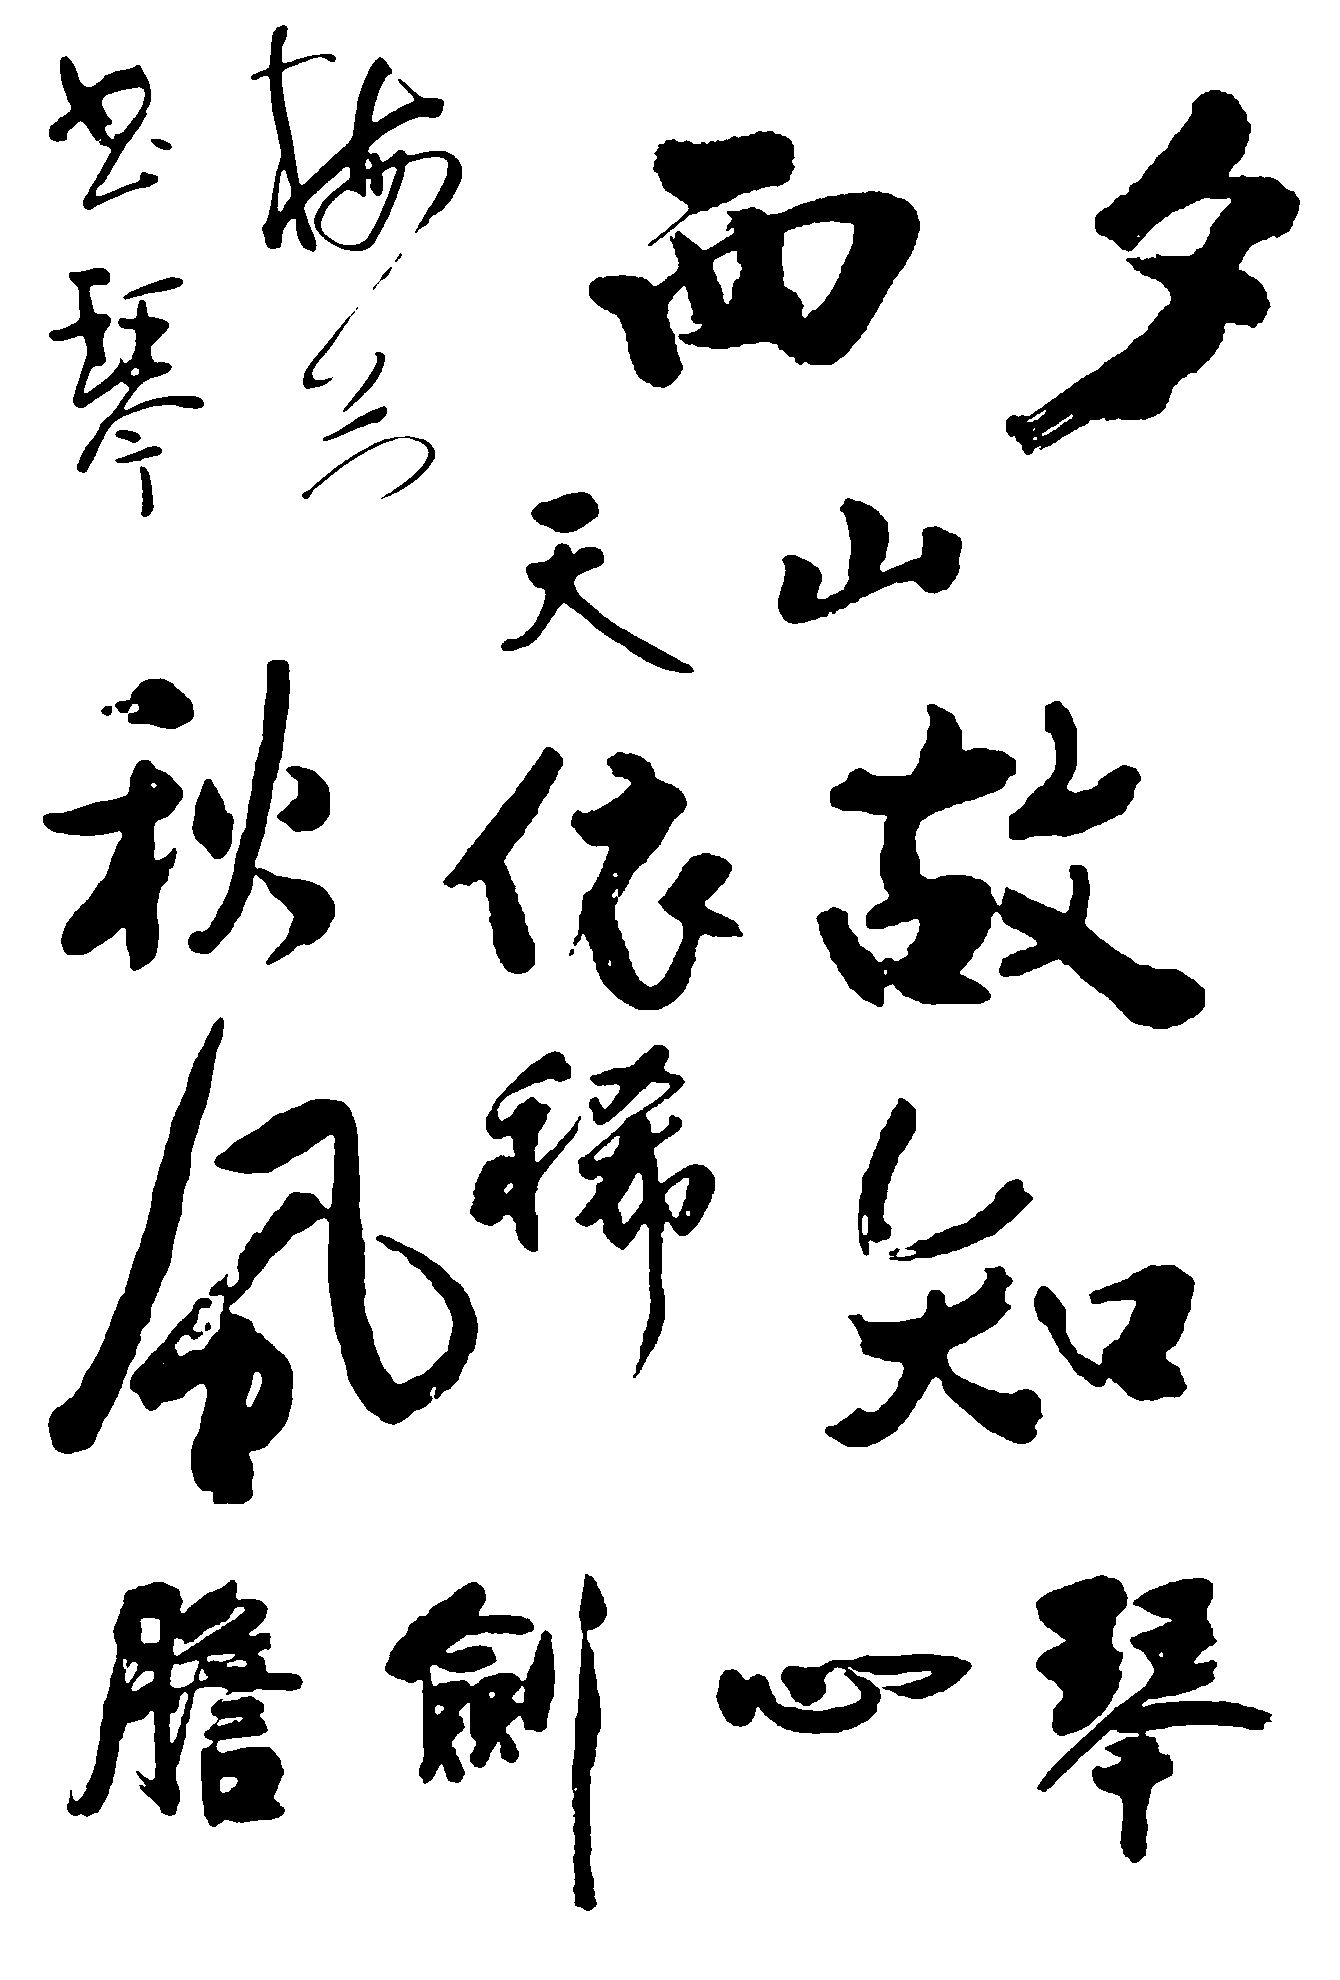 夕
西
山
故知
天
依稀
梅
琴
秋風
琴心劍膽